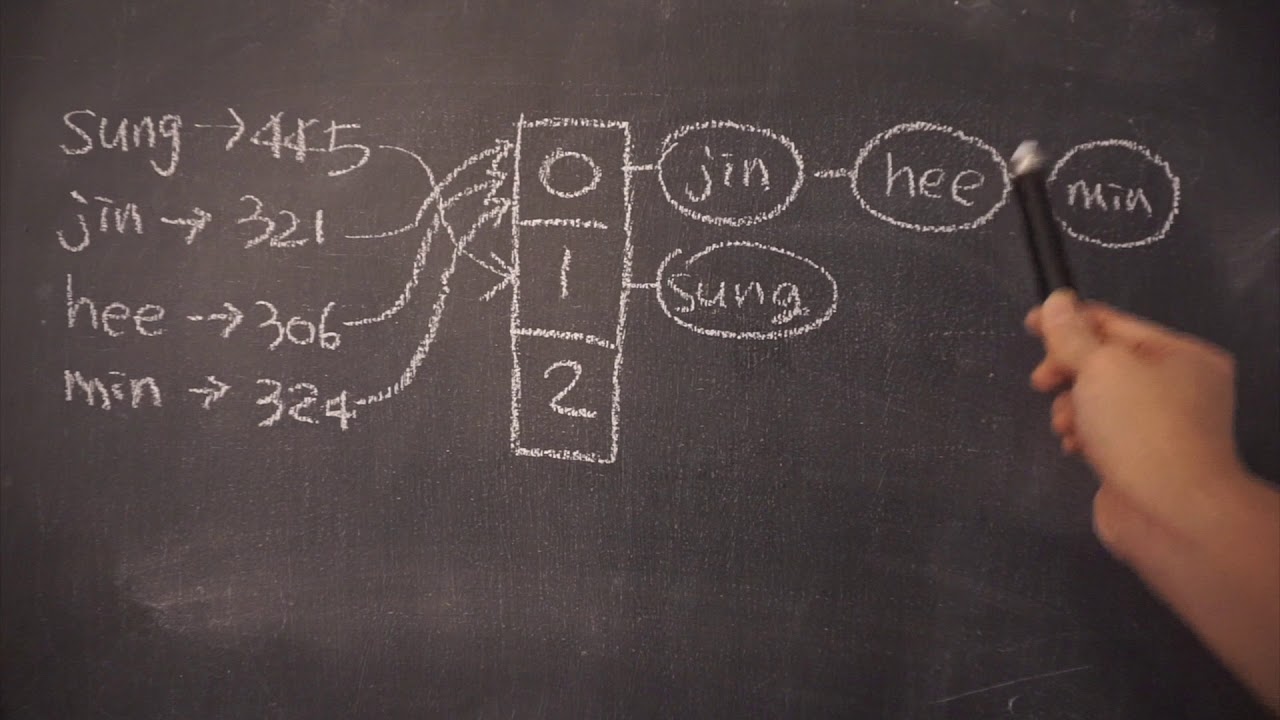 Sung → 445
jin → 321
hee → 306
min → 324
0 jin hee min
1 Sung
2